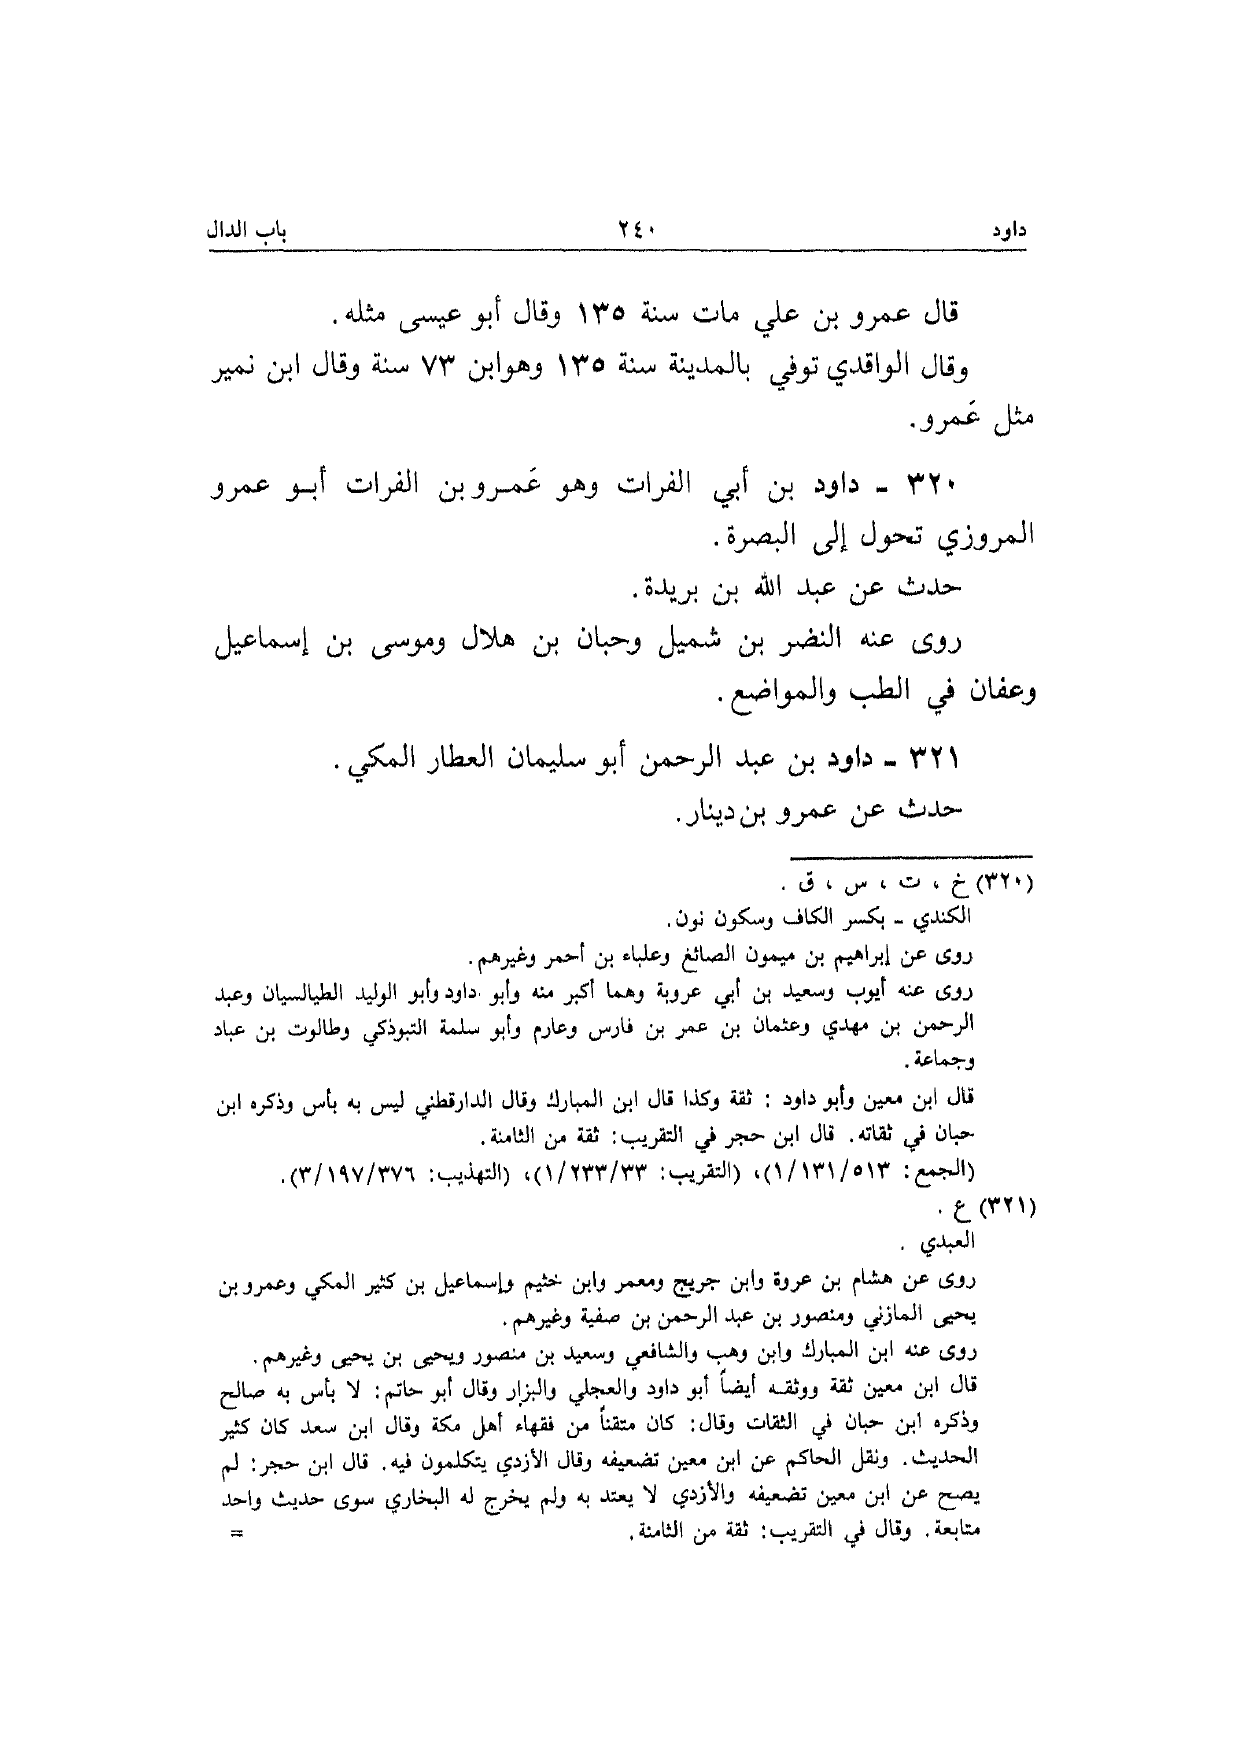 داود ٢٤٠ باب الدال
قال عمرو بن علي مات سنة ١٣٥ وقال أبو عيسى مثله.
وقال الواقدي توفي بالمدينة سنة ١٣٥ وهوابن ٧٣ سنة وقال ابن نمير
مثل عَمرو.
٣٢٠ ـ داود بن أبي الفرات وهو عَمرو بن الفرات أبو عمرو
المروزي تحول إلى البصرة.
حدث عن عبد الله بن بريدة.
روى عنه النضر بن شميل وحبان بن هلال وموسى بن إسماعيل
وعفان في الطب والمواضع.
٣٢١ ـ داود بن عبد الرحمن أبو سليمان العطار المكي.
حدث عن عمرو بن دينار.
(٣٢٠) خ ، ت ، س ، ق .
الكندي ـ بكسر الكاف وسكون نون.
روى عن إبراهيم بن ميمون الصائغ وعلباء بن أحمر وغيرهم.
روى عنه أيوب وسعيد بن أبي عروبة وهما أكبر منه وأبو داود وأبو الوليد الطيالسيان وعبد
الرحمن بن مهدي وعثمان بن عمر بن فارس وعارم وأبو سلمة التبوذكي وطالوت بن عباد
وجماعة.
قال ابن معين وأبو داود : ثقة وكذا قال ابن المبارك وقال الدارقطني ليس به بأس وذكره ابن
حبان في ثقاته. قال ابن حجر في التقريب: ثقة من الثامنة.
(الجمع: ١/١٣١/٥١٣)، (التقريب: ١/٢٣٣/٣٣)، (التهذيب: ٣/١٩٧/٣٧٦).
(٣٢١) ع .
العبدي .
روى عن هشام بن عروة وابن جريج ومعمر وابن خثيم وإسماعيل بن كثير المكي وعمرو بن
يحيى المازني ومنصور بن عبد الرحمن بن صفية وغيرهم.
روى عنه ابن المبارك وابن وهب والشافعي وسعيد بن منصور ويحيى بن يحيى وغيرهم.
قال ابن معين ثقة ووثقه أيضاً أبو داود والعجلي والبزار وقال أبو حاتم: لا بأس به صالح
وذكره ابن حبان في الثقات وقال: كان متقناً من فقهاء أهل مكة وقال ابن سعد كان كثير
الحديث. ونقل الحاكم عن ابن معين تضعيفه وقال الأزدي يتكلمون فيه. قال ابن حجر: لم
يصح عن ابن معين تضعيفه والأزدي لا يعتد به ولم يخرج له البخاري سوى حديث واحد
متابعة. وقال في التقريب: ثقة من الثامنة. =